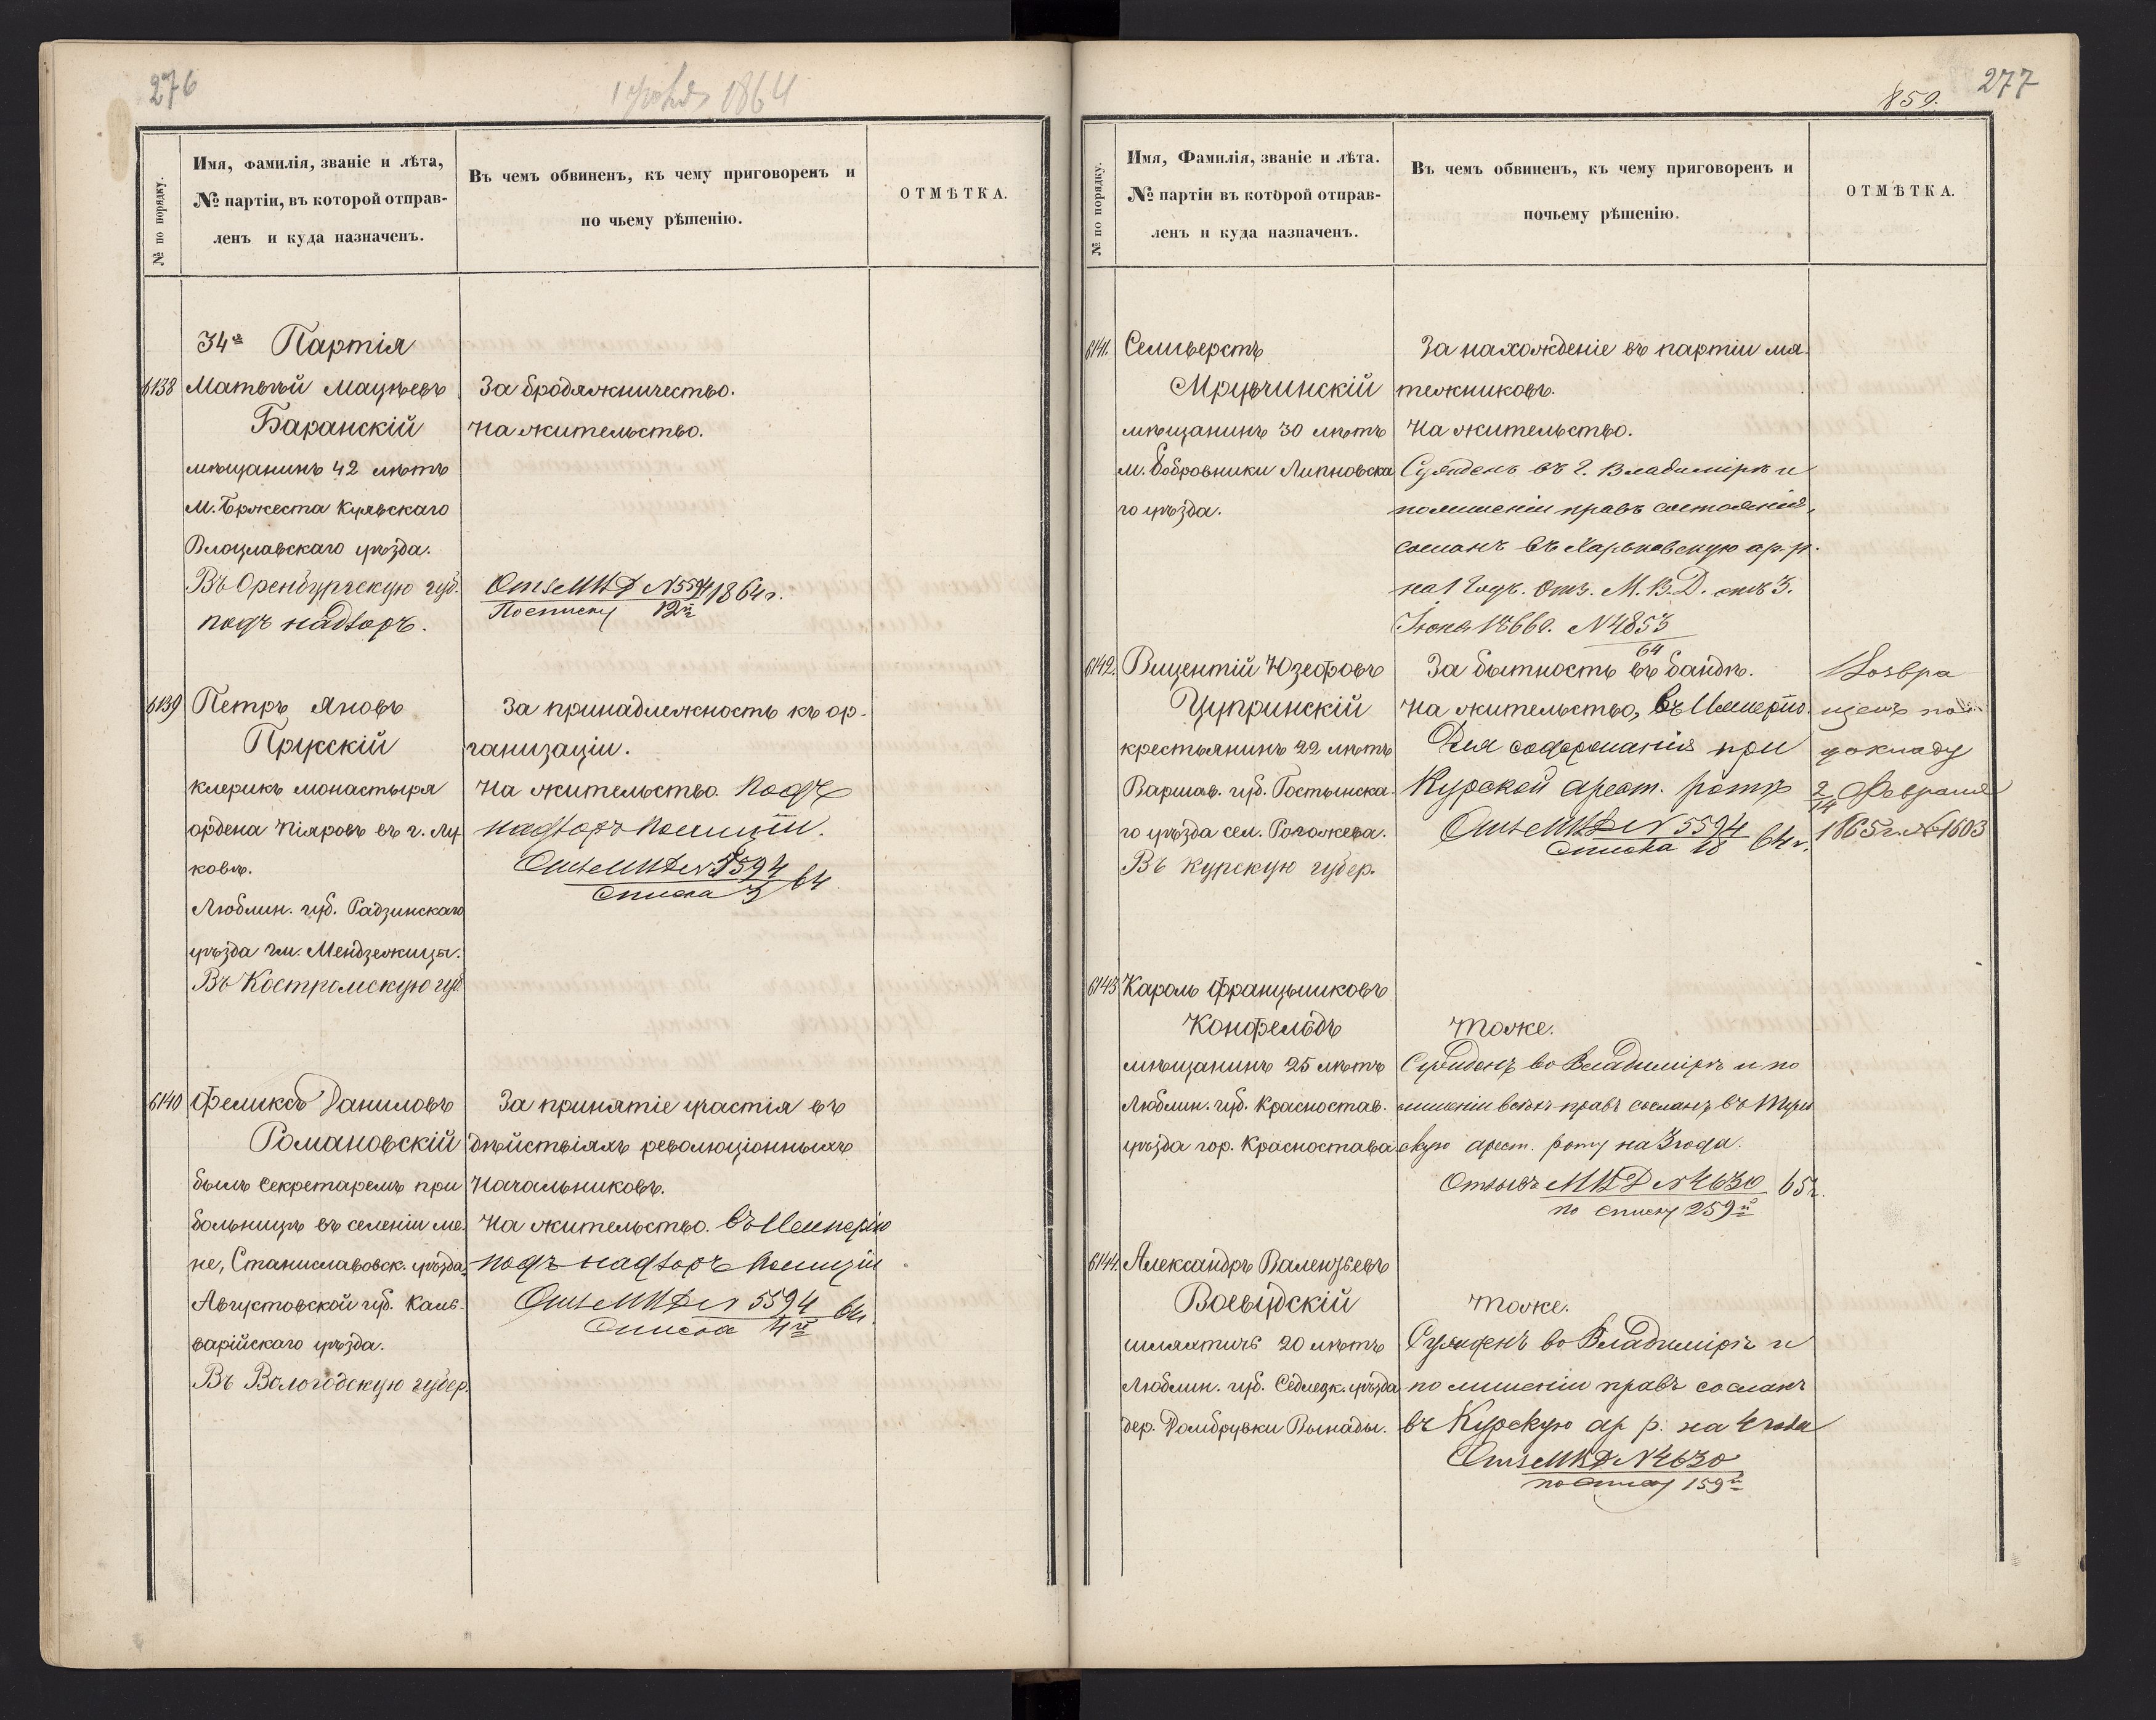 276
1864
№ по порядку.
Имя, фамилія, званіе и лѣта,
№ партіи, въ которой отправ-
ленъ и куда назначенъ.
Въ чемъ обвиненъ, къ чему приговоренъ и
по чьему рѣшенію.
ОТМѢТКА.
34я Партія
6138 Матвѣй Мацѣевъ
Баранскій
мѣщанинъ 42 лѣтъ
М. Бржеста Куявскаго
Влоцлавскаго уѣзда.
Въ Оренбургскую губ.
подъ надзоръ.
За бродяжничество.
На жительство.
Отз МВД N 5594 1864 г.
По списку 12й
6139 Петръ Яновъ
Прусскій
клерикъ монастыря
ордена Піяровъ въ г. Лу
ковѣ.
Люблин. губ. Радзинскаго
уѣзда гм. Мендзежицы.
Въ Костромскую губ.
За принадлежность къ ор-
ганизаціи.
На жительство. Подъ
надзоръ полиціи.
Отз МВД N 5594 64
списка 3
6140 Феликсъ Даниловъ
Романовскій
былъ Секретаремъ при
больницѣ въ селеніи ме-
не, Станиславовск. уѣзда.
Августовской губ. Каль-
варійскаго уѣзда.
Въ Вологодскую губер.
За принятіе участія въ
дѣйствіяхъ революціонныхъ
Начальниковъ.
На жительство. въ Имперію
подъ надзоръ полиціи
Отз МВД N 5594 64
списка 4й
277
859.
№ по порядку.
Имя, Фамилія, званіе и лѣта.
№ партіи въ которой отправ-
ленъ и куда назначенъ.
Въ чемъ обвиненъ, къ чему приговоренъ и
почьему рѣшенію.
ОТМѢТКА.
6141. Селиверстъ
Мручинскій
мѣщанинъ 30 лѣтъ
м. Бобровники Липновска
го уѣзда.
За нахожденіе въ партіи мя-
тежниковъ.
На жительство.
Сужденъ въ г. Владимірѣ и
полишеніи правъ состоянія,
сосланъ въ Харьковскую ар. р.
на 1 годъ. Отз. М.В.Д. отъ 3.
Іюня 1866г. N 4853
64
6142. Вицентій Юзефовъ
Цупринскій
крестьянинъ 22 лѣтъ
Варшав. губ. Гостынска-
го уѣзда сел. Рогожева.
Въ Курскую губер.
За бытность въ бандѣ.
На жительство, въ Имперію.
Для содержанія при
Курской арест. ротѣ
Отз МВД N 5594 64 г.
списка 18
Возвра
щенъ по
докладу
2/14 Февраля
1865 г. № 1603
6143 Кароль Францишковъ
Конфельдъ
мѣщанинъ 25 лѣтъ
Люблин. губ. Красностав.
уѣзда гор. Красностава
тоже.
Сужденъ во Владимірѣ и по
лишеніи всѣхъ правъ сосланъ въ Туль
скую арест. роту на 3 года.
Отзывъ МВД N 4630 65 г.
по списку 259й
6144. Александръ Валентьевъ
Воевудскій
шляхтичъ 20 лѣтъ
Люблин. губ. Седлецк. уѣзда
дер. Домбрувки Выпады.
тоже.
Сужденъ во Владимірѣ и
по лишеніи правъ сосланъ
въ Курскую ар р. на 4 года
Отз МВД N 4630
по списку 159й